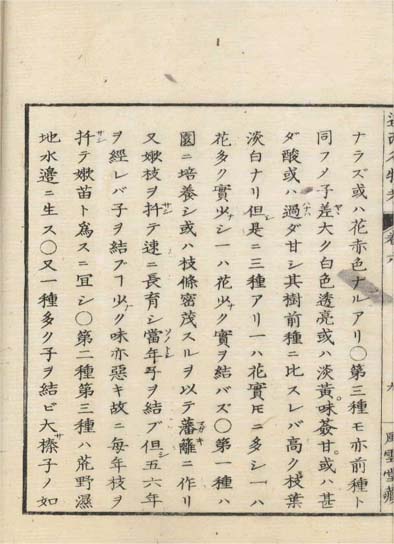 名物考
卷六
九
風雲堂藏
ナラズ或ハ花赤色ナルアリ〇第三種モ亦前種ト
同フ乄子差大ク白色透亮或ハ淡黄味薟甘或ハ甚
ダ酸或ハ過ダ甘シ其樹前種ニ比スレバ高ク枝葉
淡白ナリ但是ニ三種アリ一ハ花實𪜈ニ多シ一ハ
花多ク實少シ一ハ花少ク實ヲ結バズ〇第一種ハ
園ニ培養シ或ハ枝條密茂スルヲ以テ藩籬ニ作リ
又嫩枝ヲ扦テ速ニ長育シ當年子ヲ結ブ但シ五六年
ヲ經レバ子ヲ結ブヿ少ク味亦惡キ故ニ每年枝ヲ
扦テ嫩苗ト爲スニ冝シ〇第二種第三種ハ荒野濕
地水邊ニ生ス〇又一種多ク子ヲ結ビ大榛子ノ如